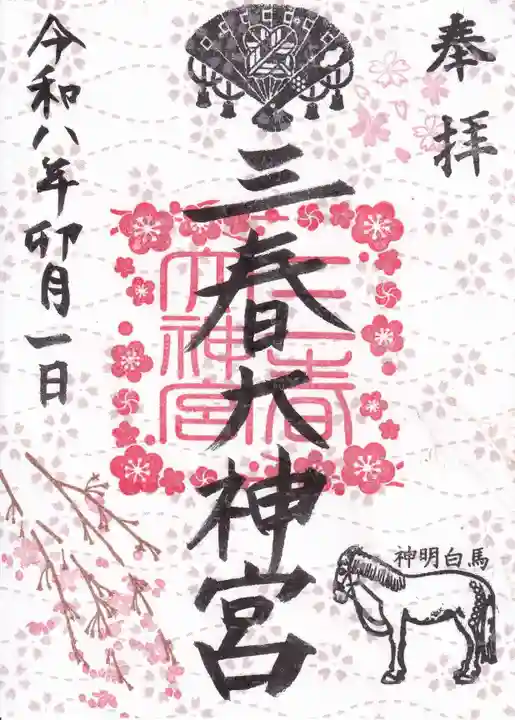 奉拝
三春大神宮
三春
大神宮
令和八年卯月一日
神明白馬